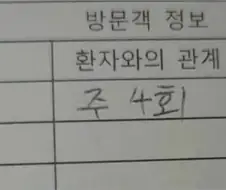 방문객 정보
환자와의 관계
주 4회